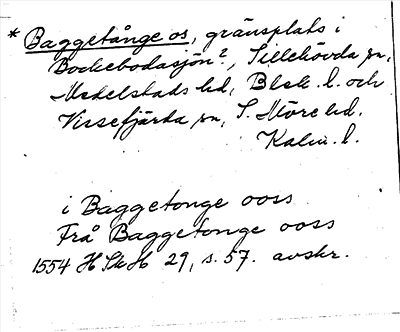 * Baggetånge os, gränsplats i
Bockebodasjön?, Tillehövda sn,
Medelstads hd, Blek. l. och
Vissefjärda sn, S. Möre hd,
Kalm. l.
i Baggetonge ooss
Frå Baggetonge ooss
1554 HSkH 29, s. 57. avskr.